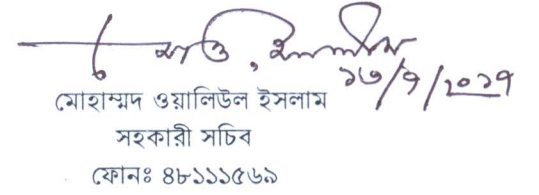 ১৩/৭/২০১৭
মোহাম্মদ ওয়ালিউল ইসলাম
সহকারী সচিব
ফোনঃ ৪৮১১১৫৬৯